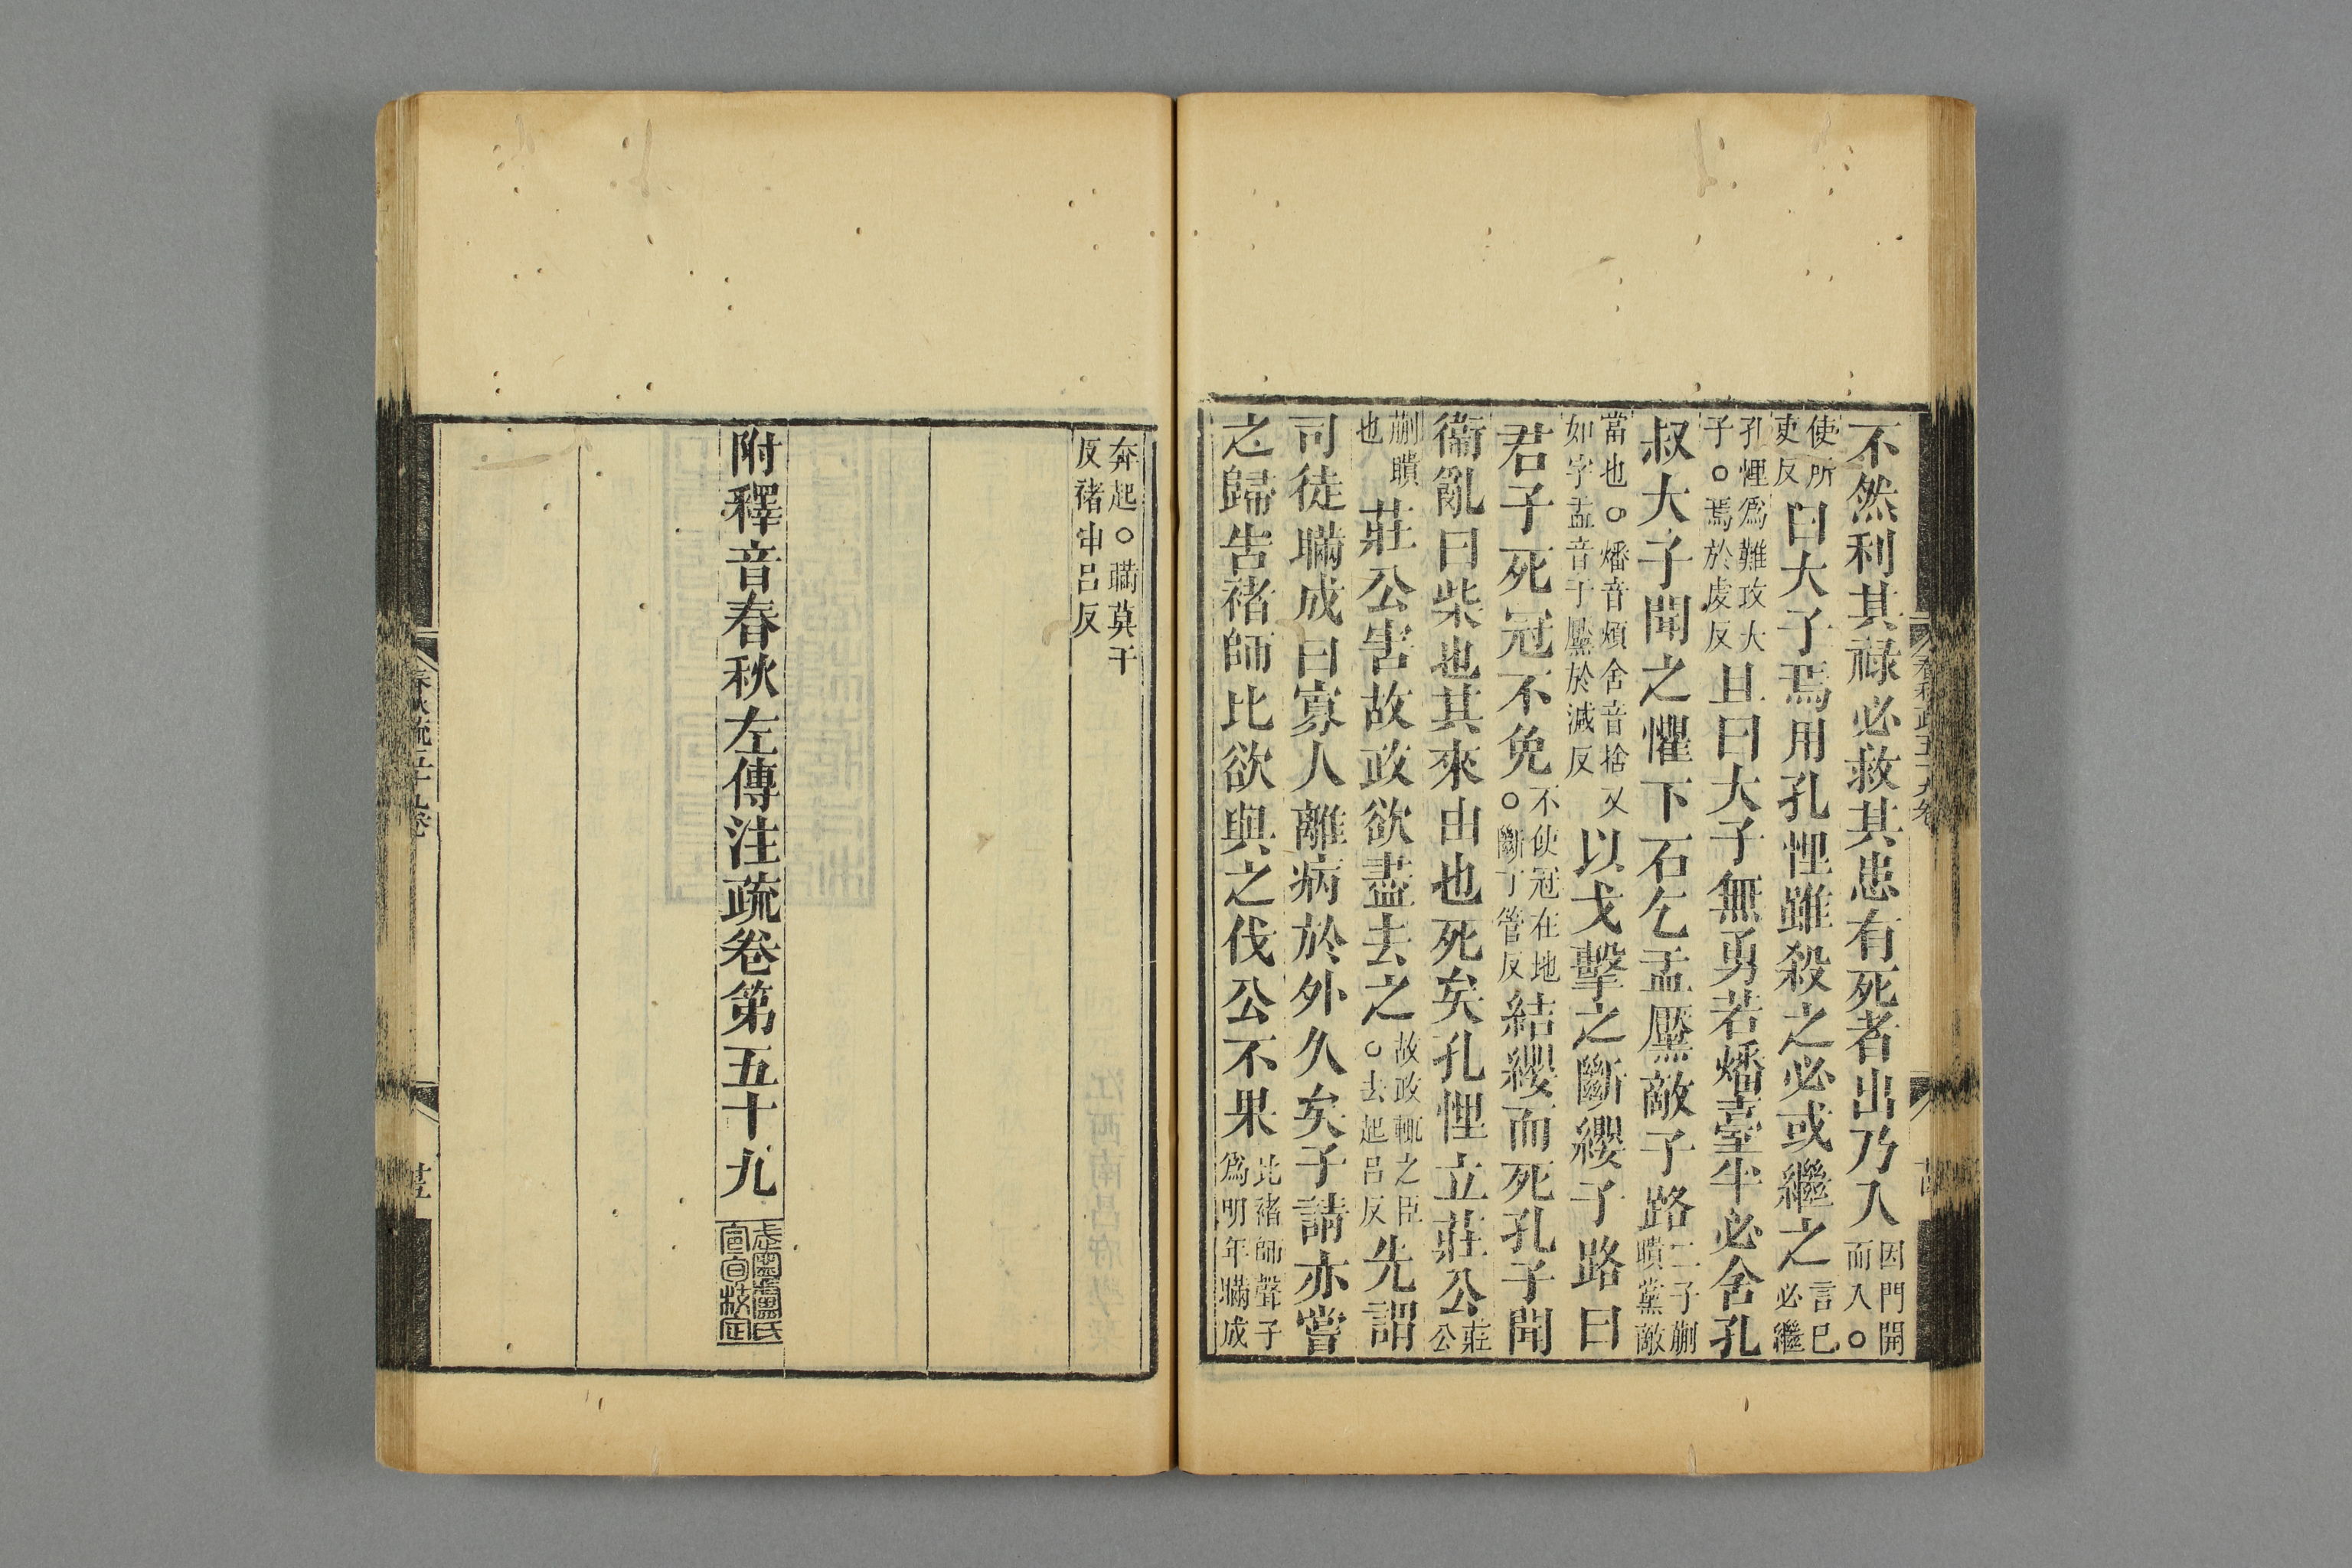 不然利其祿必救其患有死者出乃入因門開而入○
使所吏反曰大子焉用孔悝雖殺之必或繼之言己必繼
孔悝爲難攻大子○焉於虔反且曰大子無勇若燔臺半必舍孔
叔大子聞之懼下石乞盂黶敵子路二子蒯聵黨敵
當也○燔音煩舍音捨又如字盂音于黶於減反以戈擊之斷纓子路曰
君子死冠不免不使冠在地○斷丁管反結纓而死孔子聞
衞亂曰柴也其來由也死矣孔悝立莊公莊公
蒯聵也莊公害故政欲盡去之故政輒之臣○去起呂反先謂
司徒瞞成曰寡人離病於外久矣子請亦嘗
之歸告褚師比欲與之伐公不果比褚師聲子爲明年瞞成
奔起○瞞莫干反褚申呂反
附釋音春秋左傳注疏卷第五十九
春秋疏五十九卷